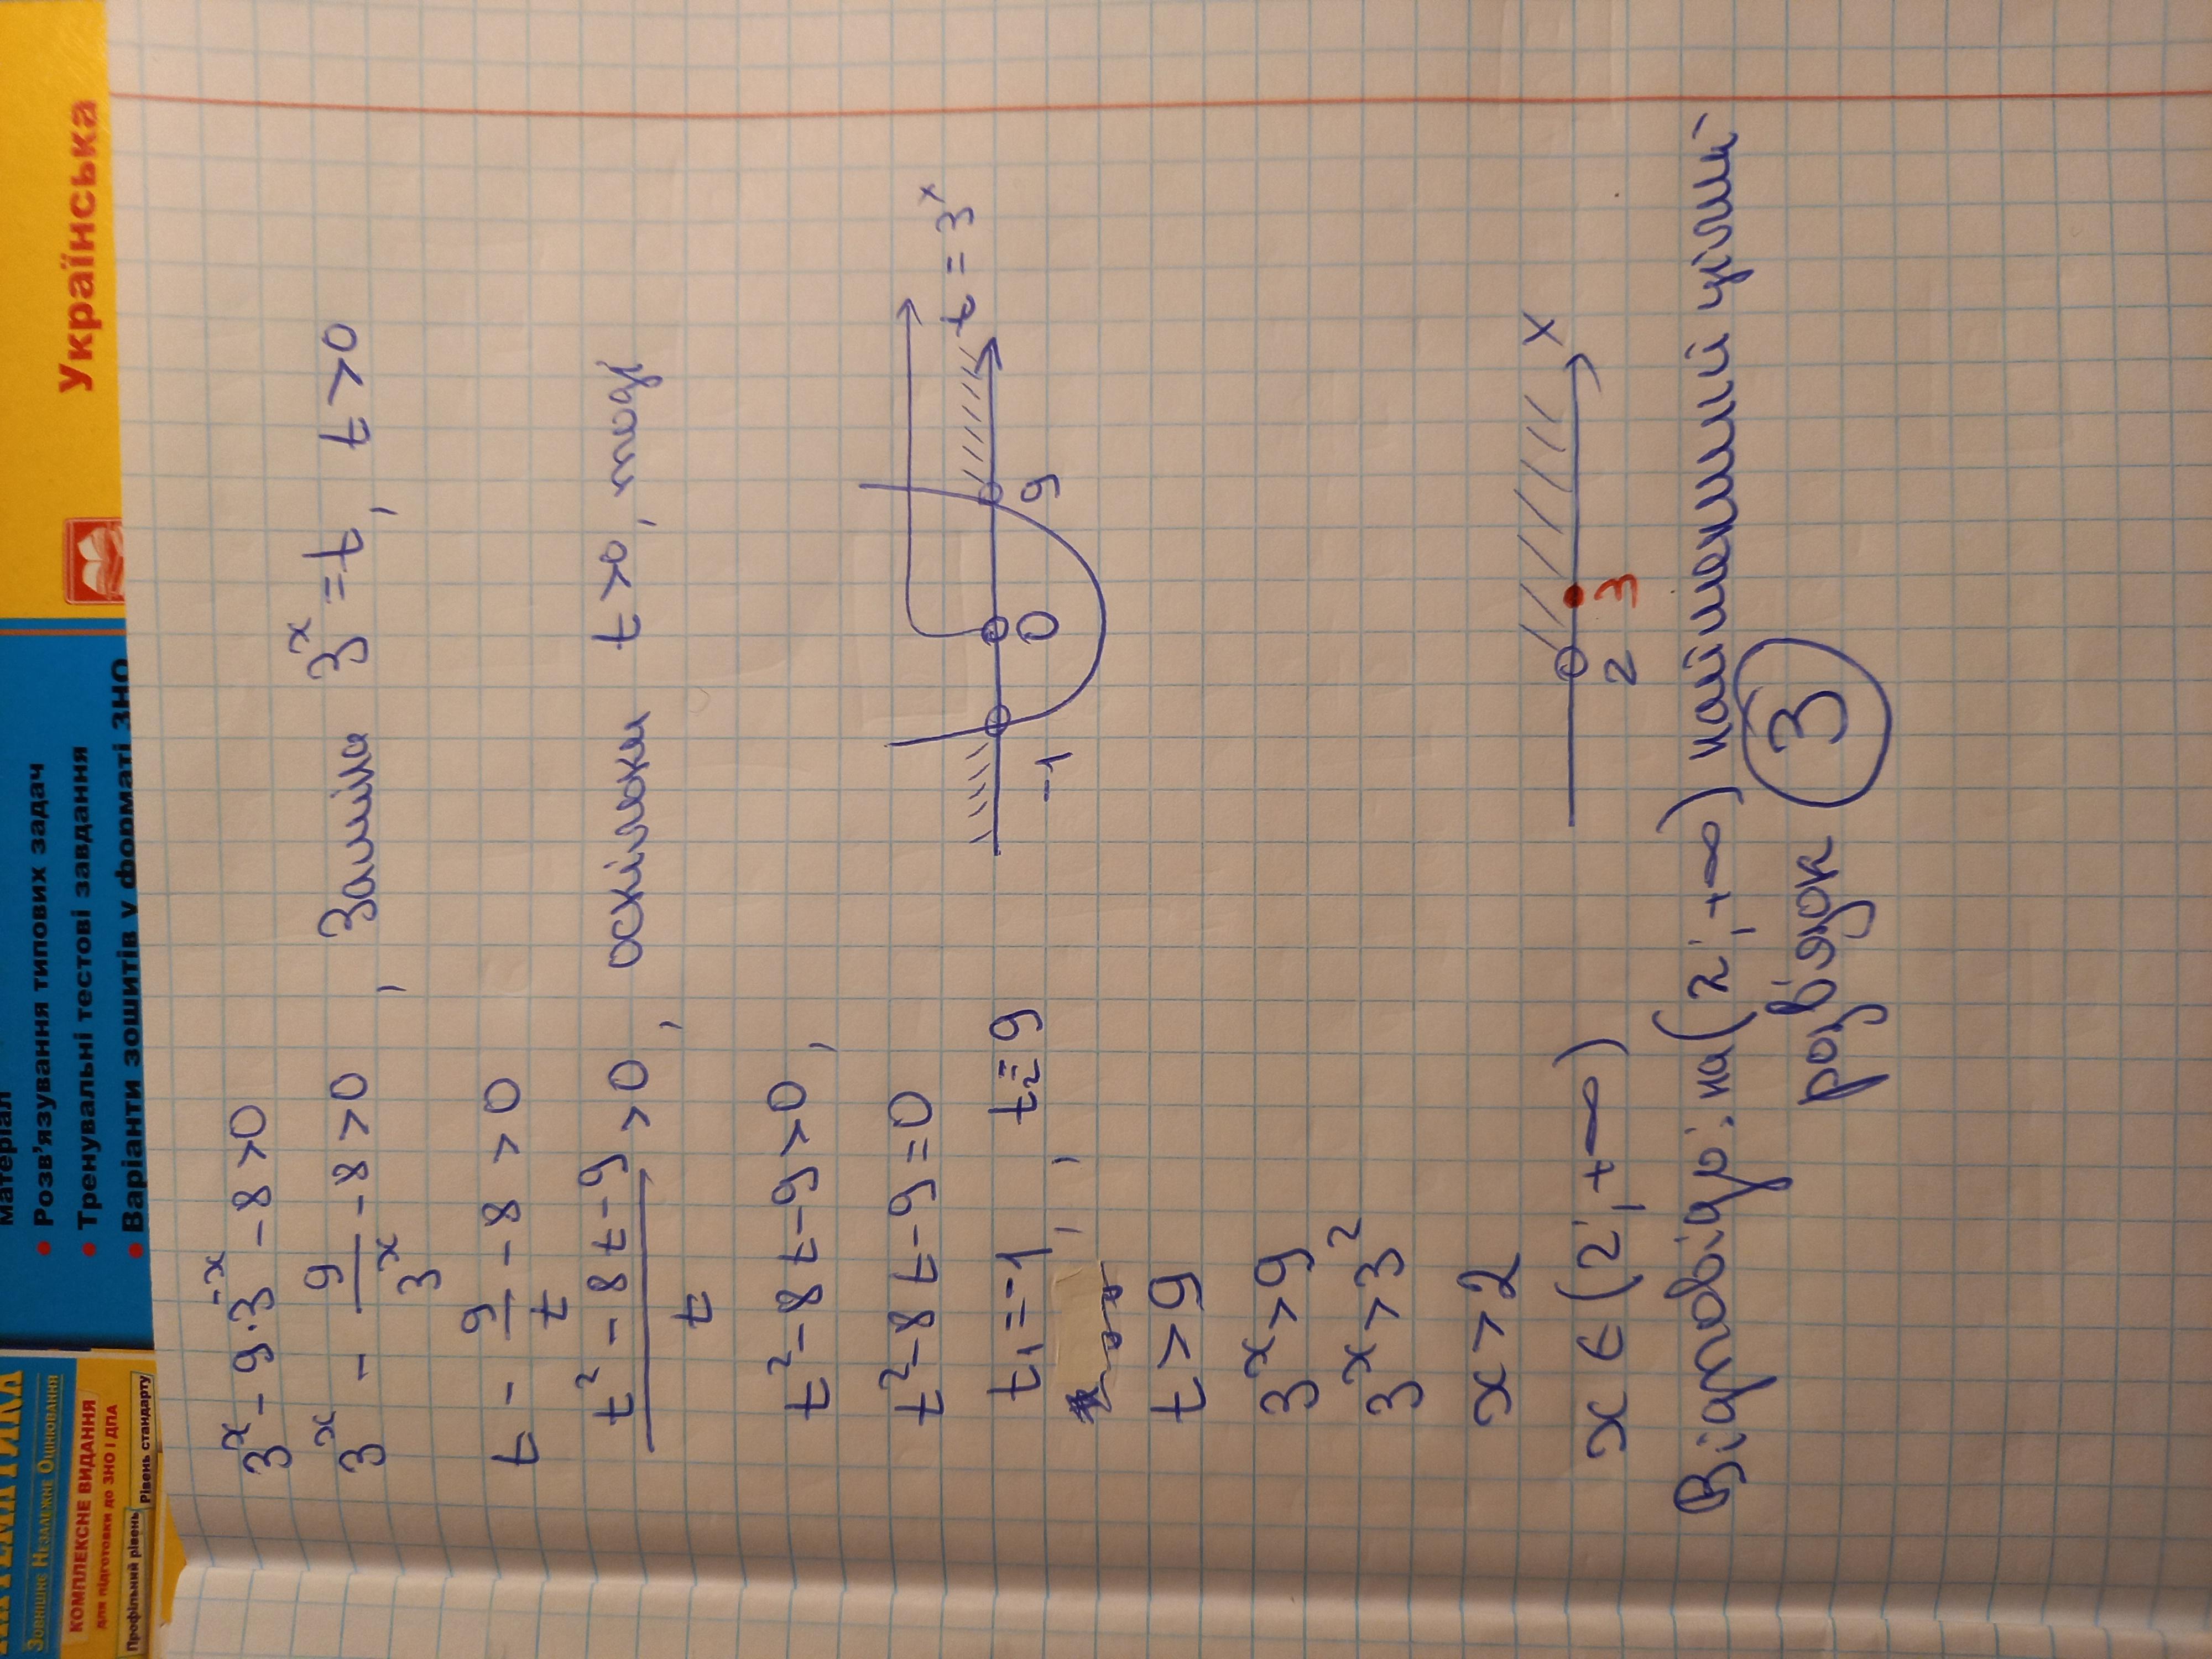 МАТЕМАТИКА
Зовнішнє Незалежне Оцінювання
КОМПЛЕКСНЕ ВИДАННЯ
для підготовки до ЗНО і ДПА
Профільний рівень
Рівень стандарту
матеріал
• Розв'язування типових задач
• Тренувальні тестові завдання
• Варіанти зошитів у форматі ЗНО
Українська
3^x - 9·3^-x - 8 > 0
3^x - 9/3^x - 8 > 0, Заміна 3^x = t, t > 0
t - 9/t - 8 > 0
(t² - 8t - 9)/t > 0, оскільки t > 0, тоді
t² - 8t - 9 > 0,
t² - 8t - 9 = 0
t₁ = -1, , t₂ = 9
-1 0 9 t = 3^x
t > 9
3^x > 9
3^x > 3²
x > 2
x ∈ (2; +∞)
2 3 x
Відповідь: на (2; +∞) найменший цілий
розв'язок 3